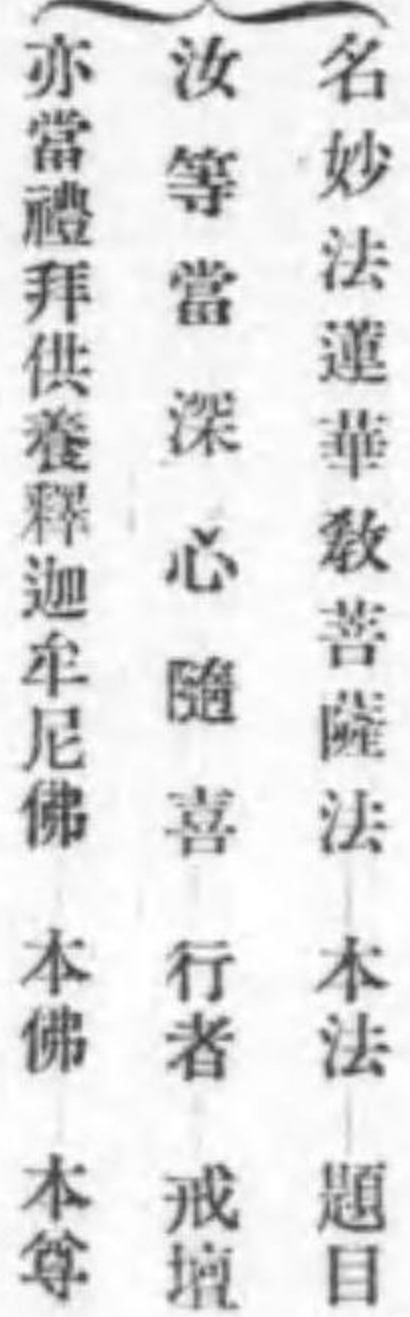 名妙法蓮華敎菩薩法―本法―題目
汝等當深心隨喜―行者―戒壇
亦當禮拜供養釋迦牟尼佛―本佛―本尊